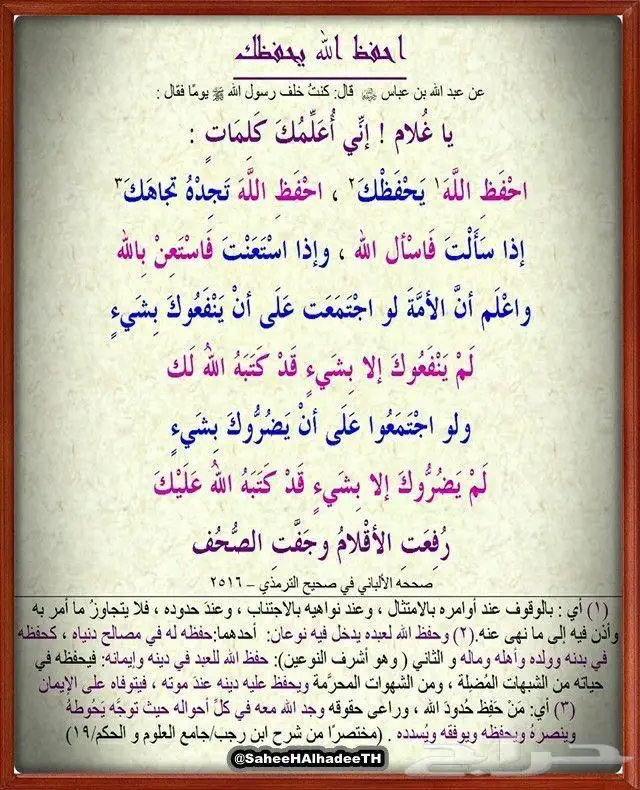 احفظ الله يحفظك
عن عبد الله بن عباس ﷺ قال: كنتُ خلف رسول الله ﷺ يومًا فقال :
يا غُلام ! إنِّي أُعَلِّمُكَ كَلِمَاتٍ :
احْفَظِ اللَّهَ ١ يَحْفَظْكَ ٢ ، احْفَظِ اللَّهَ تَجِدْهُ تجَاهَكَ ٣
إذا سَأَلْتَ فَاسْألِ الله ، وإذا اسْتَعَنْتَ فَاسْتَعِنْ بِالله
واعْلَم أنَّ الأمَّةَ لو اجْتَمَعَت عَلَى أنْ يَنْفَعُوكَ بِشَيءٍ
لَمْ يَنْفَعُوكَ إلا بِشَيءٍ قَدْ كَتَبَهُ اللهُ لَك
ولو اجْتَمَعُوا عَلَى أنْ يَضُرُّوكَ بِشَيءٍ
لَمْ يَضُرُّوكَ إلا بِشَيءٍ قَدْ كَتَبَهُ اللهُ عَلَيْكَ
رُفِعَتِ الأقْلامُ وجَفَّتِ الصُّحُف
صححه الألباني في صحيح الترمذي – ٢٥١٦
(١) أي : بالوقوف عند أوامره بالامتثال ، وعند نواهيه بالاجتناب ، وعند حدوده ، فلا يتجاوزُ ما أمر به
وأذن فيه إلى ما نهى عنه.(٢) وحفظ الله لعبده يدخل فيه نوعان: أحدهما:حفظه له في مصالح دنياه ، كحفظه
في بدنه وولده وأهله وماله و الثاني ( وهو أشرف النوعين): حفظ الله للعبد في دينه وإيمانه: فيحفظه في
حياته من الشبهات المُضِلة ، ومن الشهوات المحرَّمة ويحفظ عليه دينه عند موته ، فيتوفاه على الإيمان
(٣) أي: مَنْ حَفِظ حُدودَ الله ، وراعى حقوقه وجد الله معه في كلِّ أحواله حيث توجَّه يَحُوطهُ
وينصرهُ ويحفظه ويوفقه ويُسدده . (مختصرًا من شرح ابن رجب/جامع العلوم و الحكم/١٩)
@SaheeHAlhadeeTH
حراج